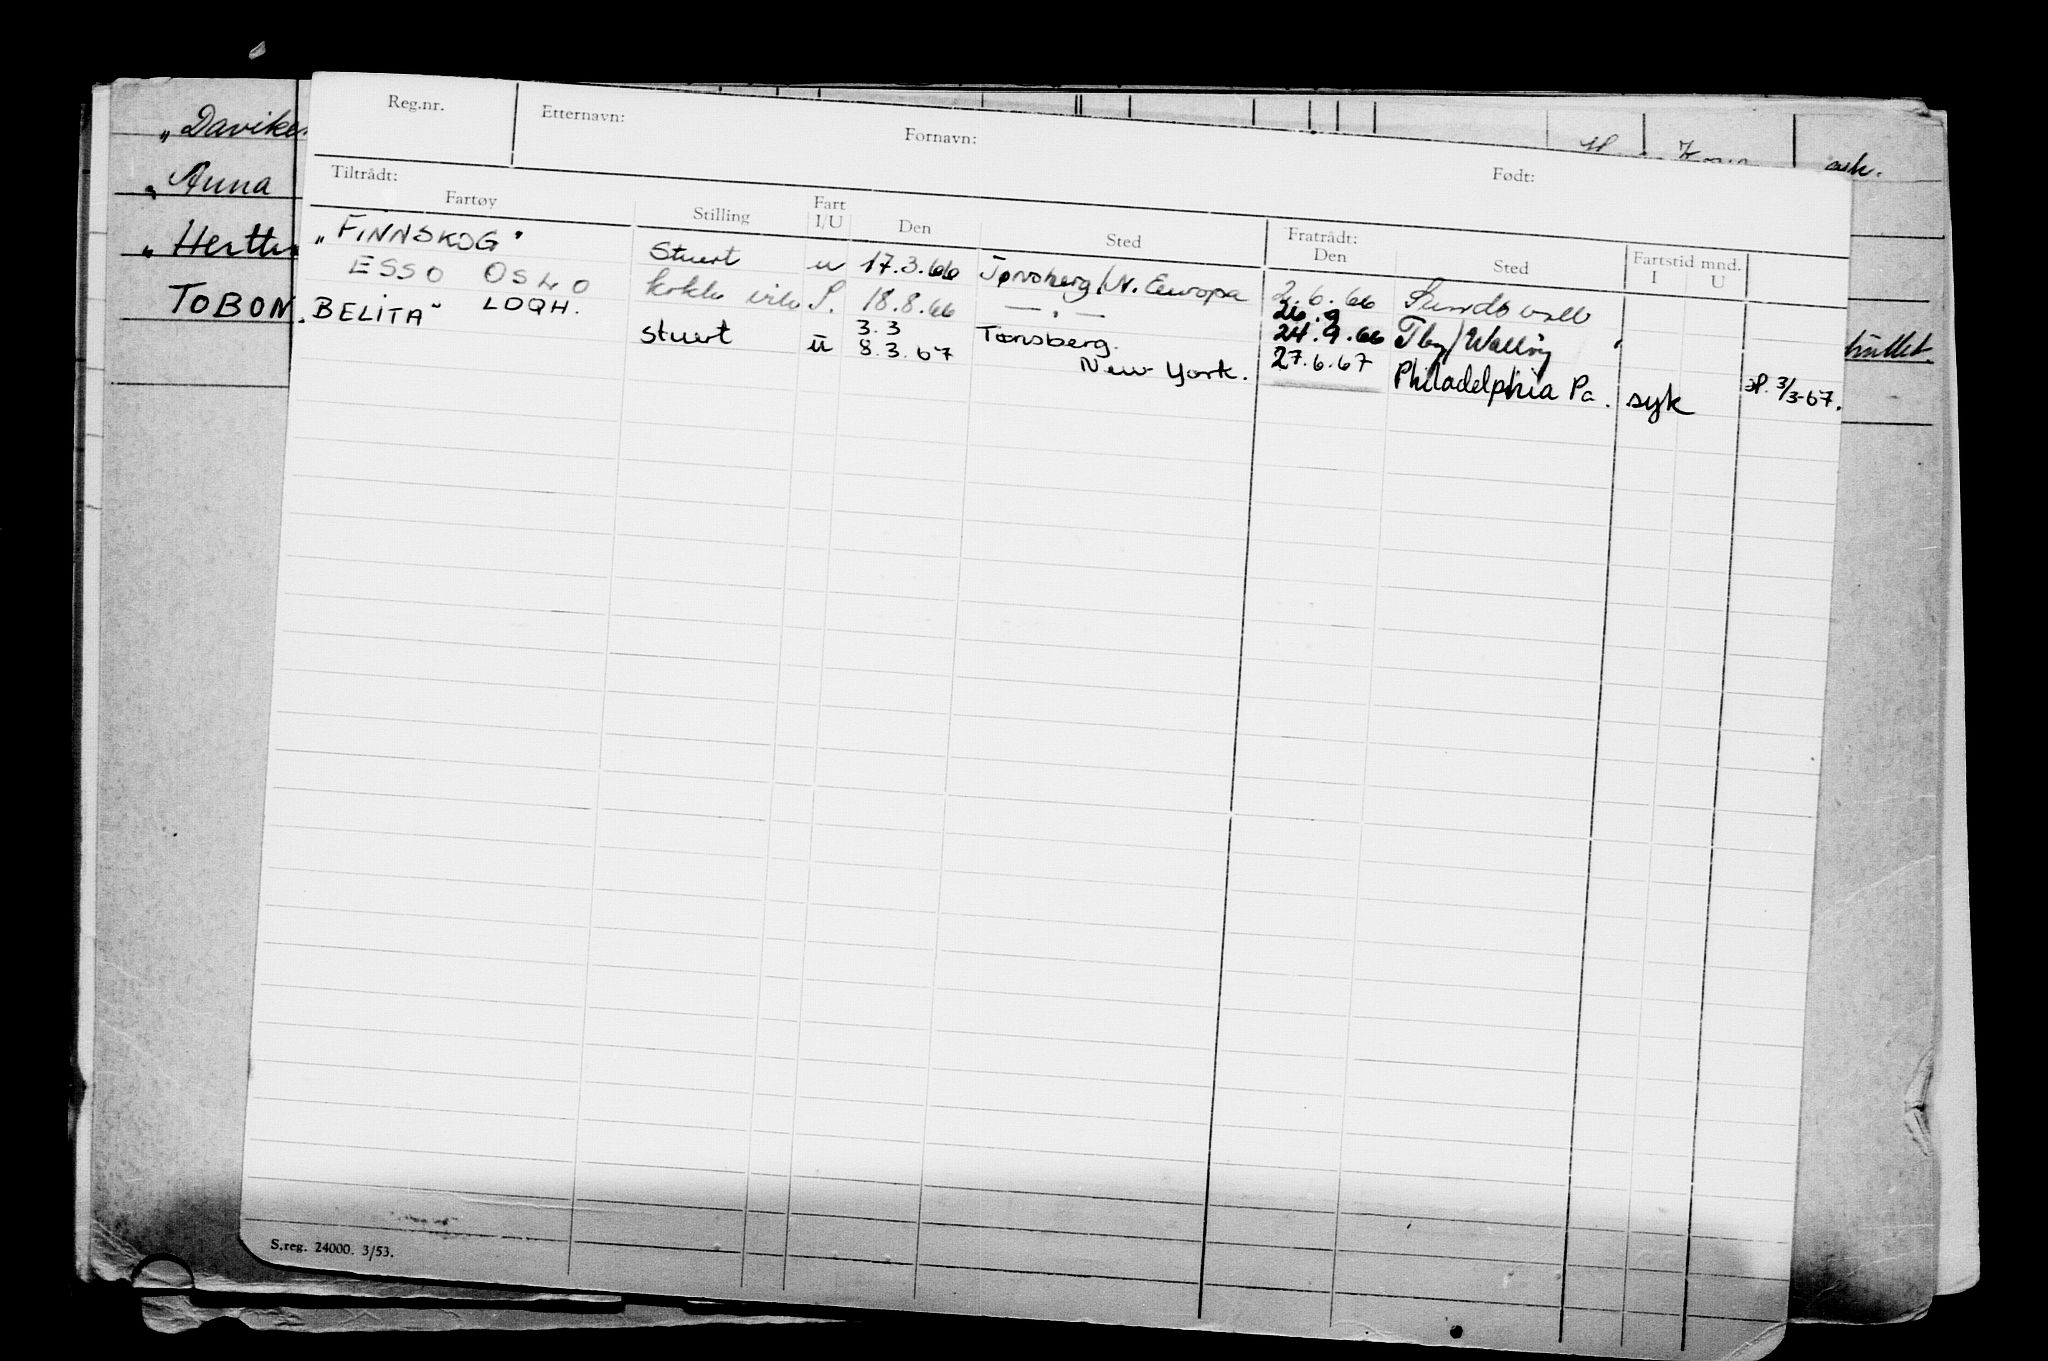 Reg.nr. Etternavn: Fornavn: Født:
Tiltrådt:
Fartøy Stilling Fart I/U Den Sted Fratrådt: Den Sted Fartstid mnd. I U
„FINNSKOG" Stuert u 17.3.66 Tønsberg/N. Europa 2.6.66 Sundsvall
ESSO OSLO S. 18.8.66 — " — 26.9
„BELITA" LDQH. stuert u 3.3 Tønsberg. 24.9.66 Tbg/
8.3.67 New York. 27.6.67 Philadelphia Pa. syk 3/3-67.
„Davike
„Anna
„Herth
TOBON
S.reg. 24000. 3/53.